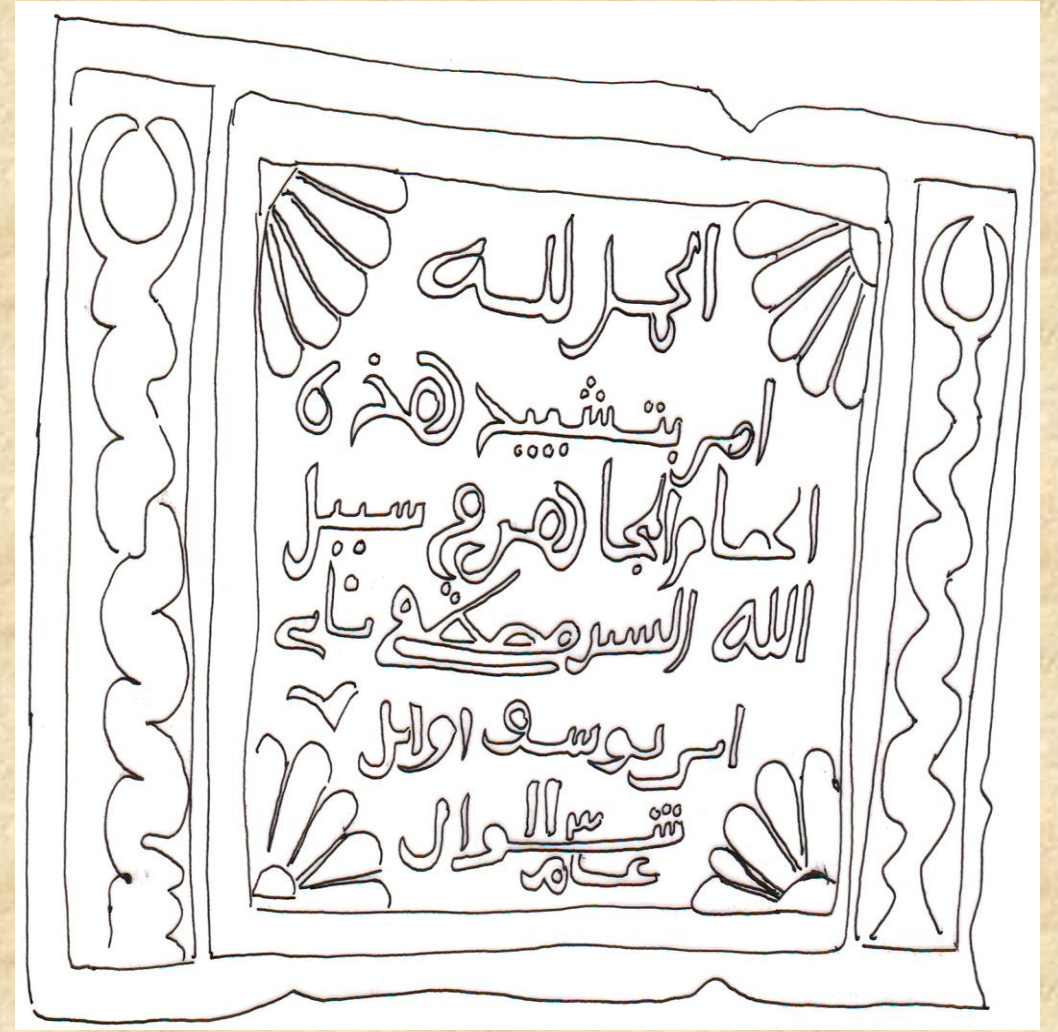 الحمد لله
امر بتشييد هذه
الحمام المجاهد في سبيل
الله السيد مصطفى باي
ابن يوسف اوائل
شوال
عام